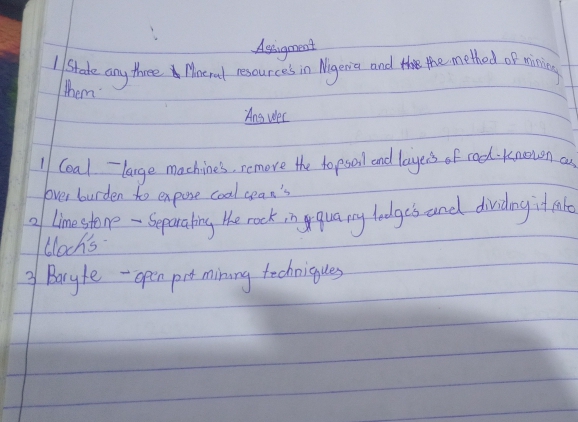 Assigment
1 State any three Mineral resources in Nigeria and the the method of mining
them.
Answer
1 Coal - large machine's remove the topsoil and layer's of rock-known as
over burden to expose coal sean's
2 Limestone - Separating the rock in quarry ledge's and dividing it into
block's.
3 Baryte - open pit mining techniques